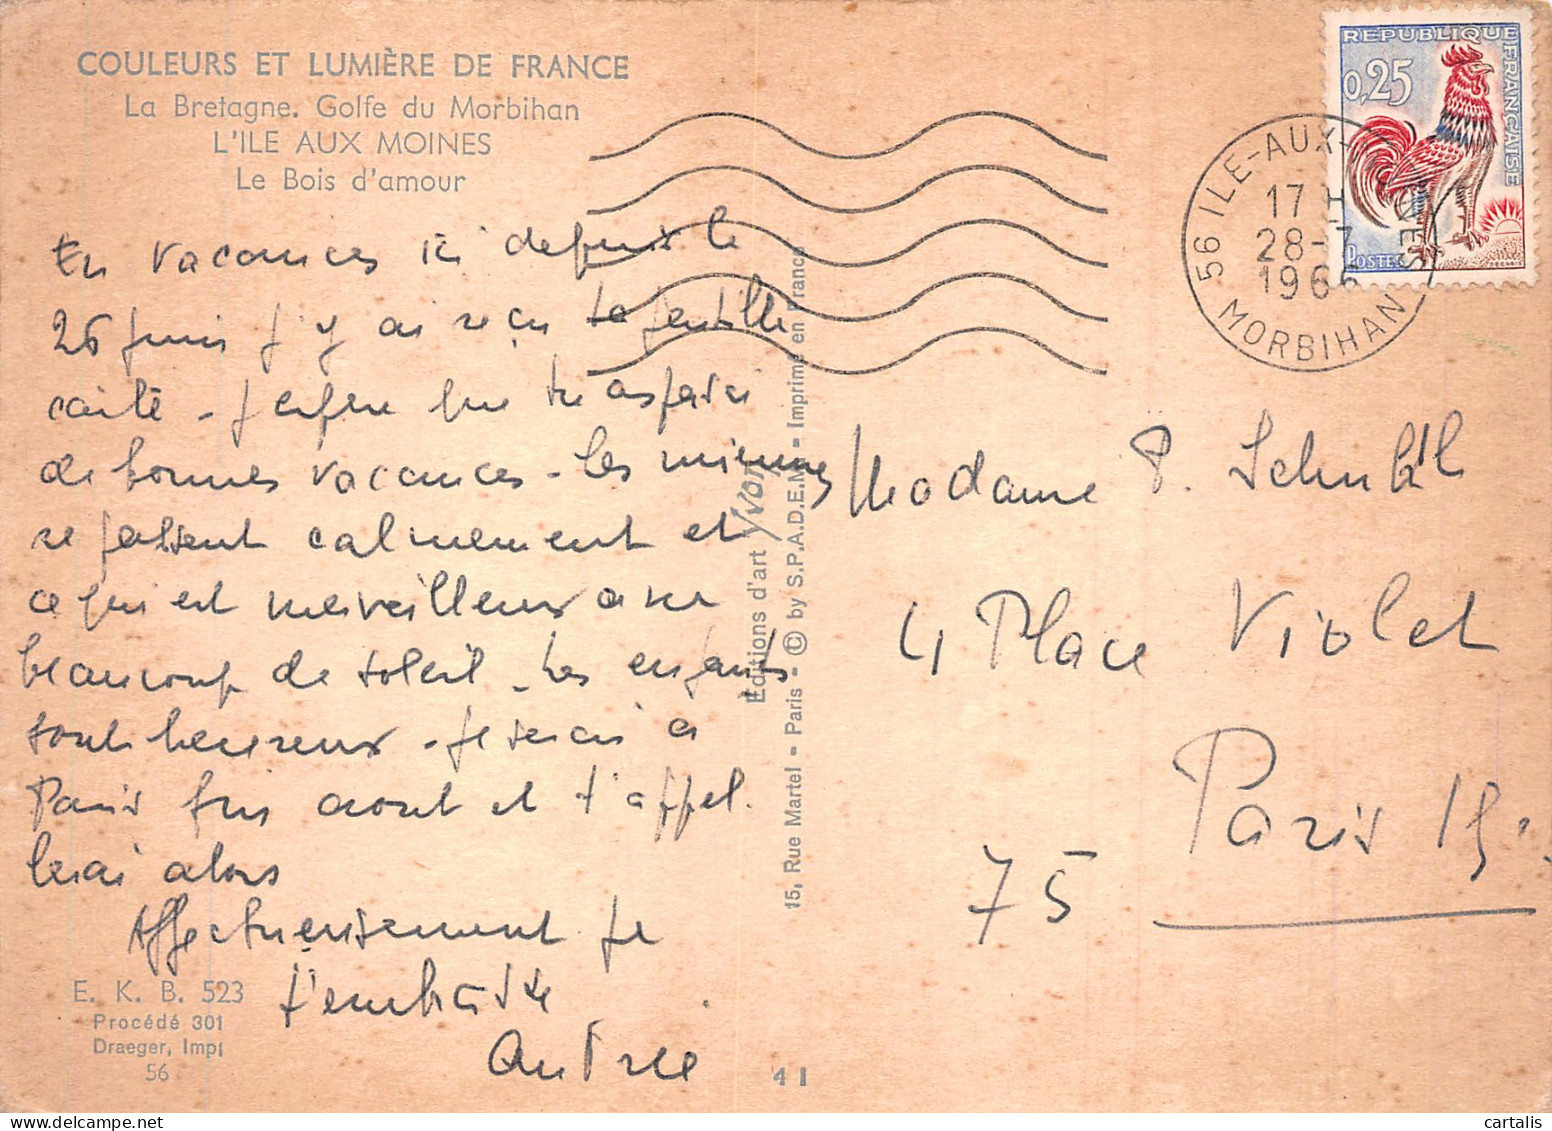 COULEURS ET LUMIÈRE DE FRANCE
La Bretagne. Golfe du Morbihan
L'ILE AUX MOINES
Le Bois d'amour
En vacances ici depuis le
26 juin j'y ai reçu ta gentille
carte - J'espère que tu as passé
de bonnes vacances - Les miennes
se passent calmement et
ce qui est merveilleux avec
beaucoup de soleil - Les enfants
sont heureux - Je serai à
Paris fin août et t'appel.
lerai alors
Affectueusement je
t'embrasse
Andrée
E. K. B. 523
Procédé 301
Draeger, Imp
56
Editions d'art Yvon
15, Rue Martel - Paris - © by S.P.A.D.E.M. - Imprimé en France
4 I
REPUBLIQUE FRANÇAISE
0,25
POSTES
DECARIS
56 ILE-AUX-MOINES
17 H
28-7
1966
MORBIHAN
Madame P.
4 Place Violet
Paris 15e.
75